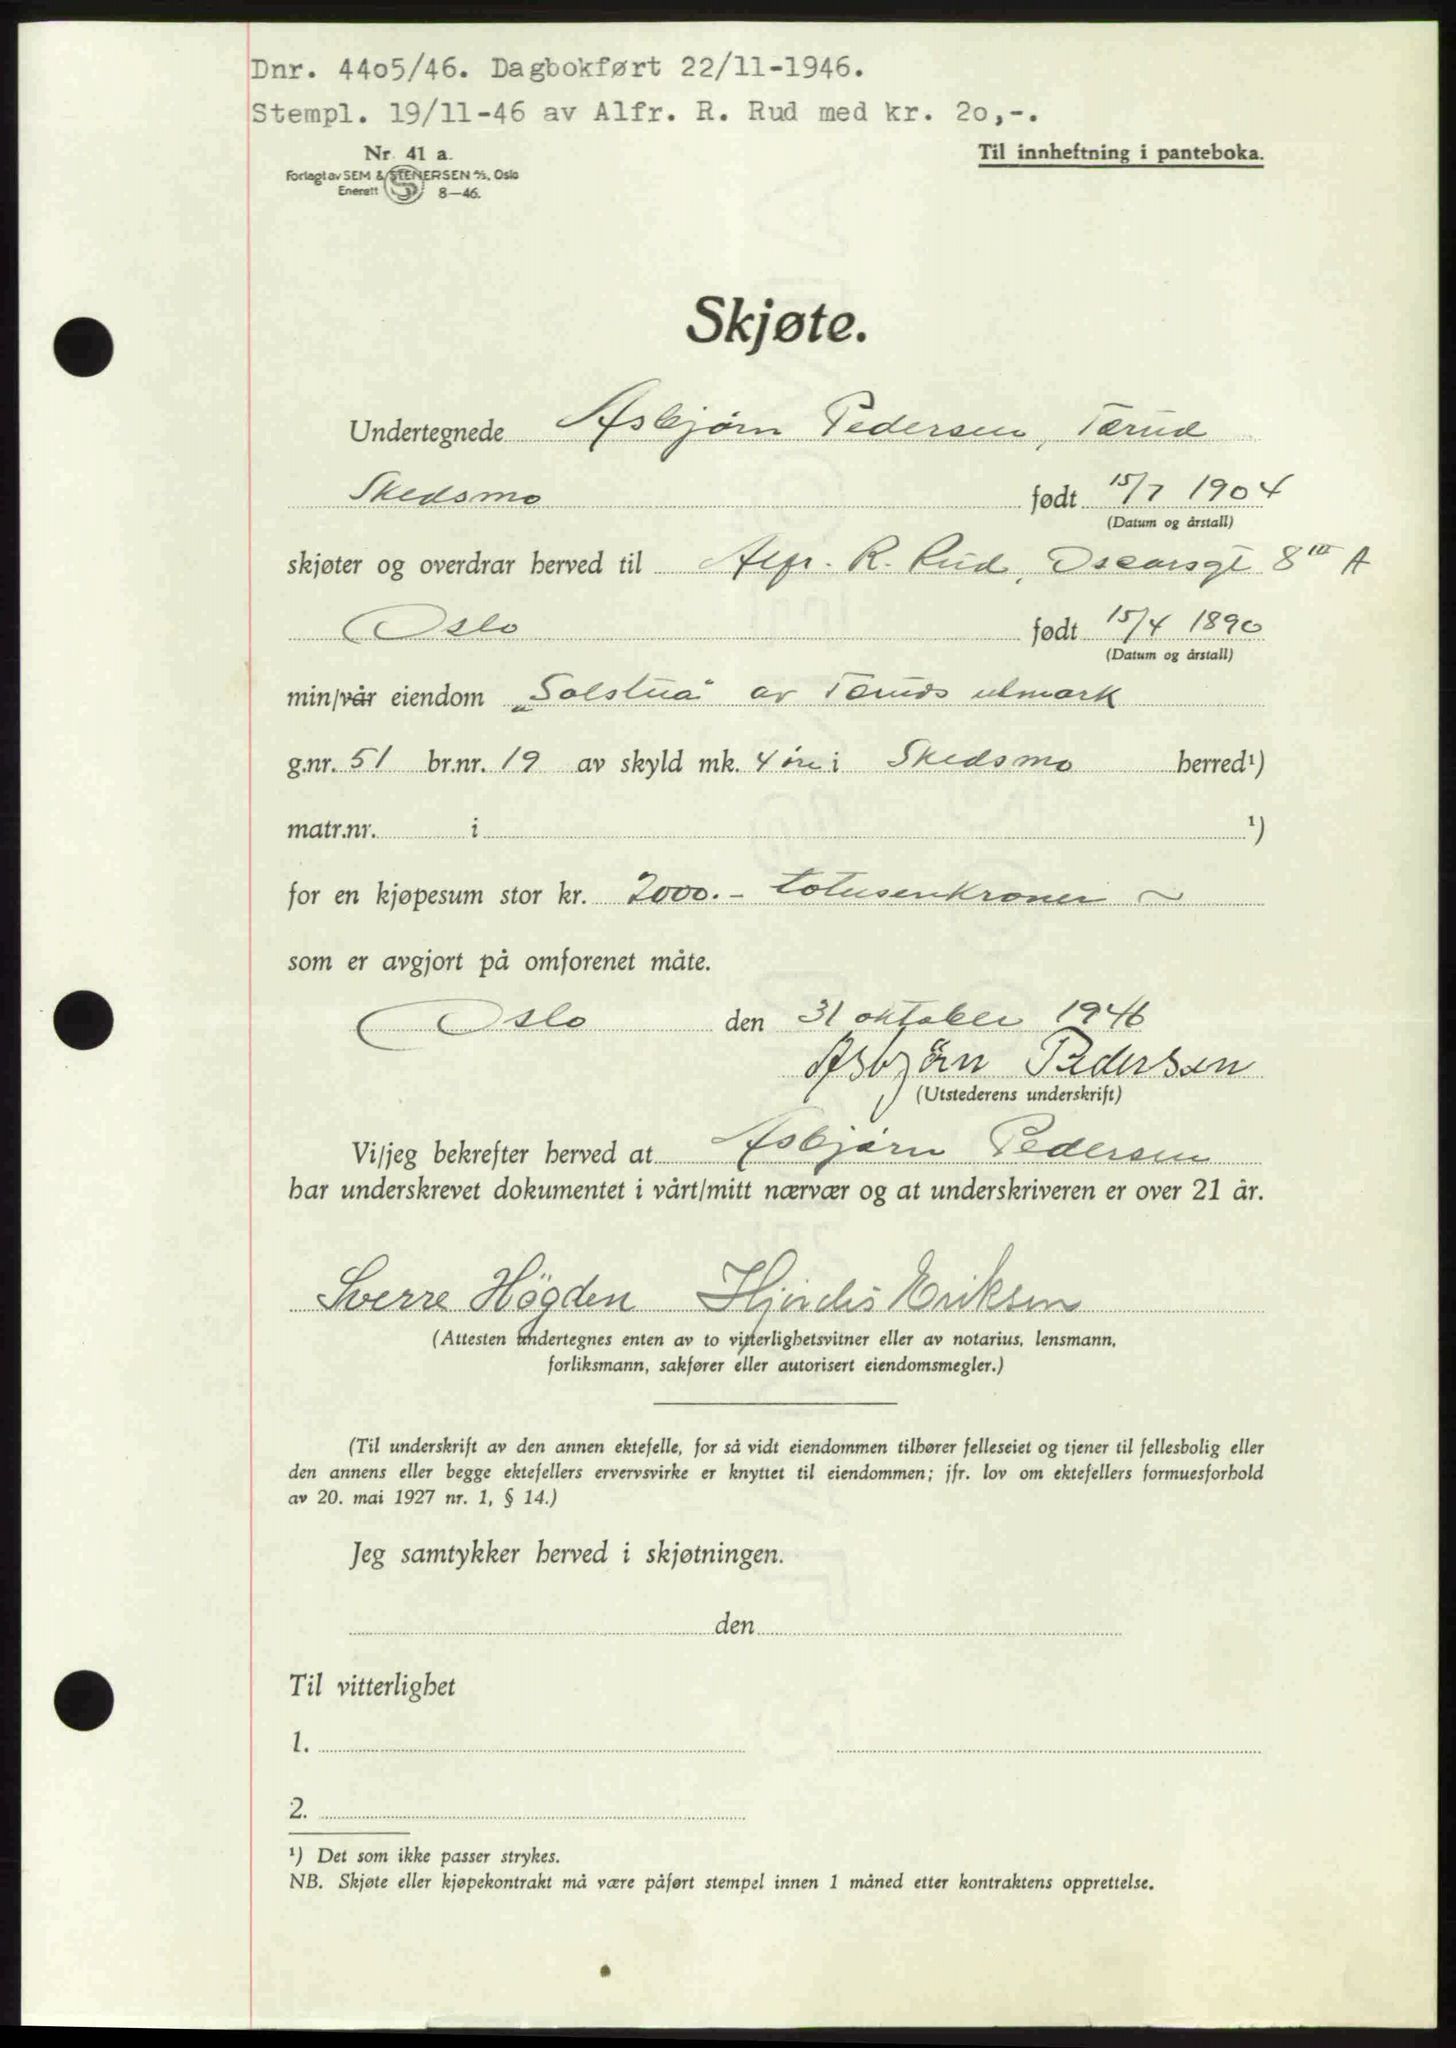 Dnr. 4405/46. Dagbokført 22/11-1946.
Stempl. 19/11-46 av Alfr. R. Rud med kr. 20,-.
Nr. 41 a.
Til innheftning i panteboka.
Forlagt av SEM & STENERSEN A/S, Oslo
Enerett 8—46.
Skjøte.
Undertegnede Asbjørn Pedersen, Tærud
Skedsmo født 15/7 1904
(Datum og årstall)
skjøter og overdrar herved til Alfr. R. Rud, Oscarsgt 8 III A
Oslo født 15/4 1890
(Datum og årstall)
min/vår eiendom „Solstua" av Tæruds utmark
g.nr. 51 br.nr. 19 av skyld mk. 4 øre i Skedsmo herred¹)
matr.nr. i ¹)
for en kjøpesum stor kr. 2000.- totusenkroner ~
som er avgjort på omforenet måte.
Oslo den 31 oktober 1946
Asbjörn Pedersen
(Utstederens underskrift)
Vi/jeg bekrefter herved at Asbjørn Pedersen
har underskrevet dokumentet i vårt/mitt nærvær og at underskriveren er over 21 år.
Sverre Högden Hjördis Eriksen
(Attesten undertegnes enten av to vitterlighetsvitner eller av notarius, lensmann,
forliksmann, sakfører eller autorisert eiendomsmegler.)
(Til underskrift av den annen ektefelle, for så vidt eiendommen tilhører felleseiet og tjener til fellesbolig eller
den annens eller begge ektefellers ervervsvirke er knyttet til eiendommen; jfr. lov om ektefellers formuesforhold
av 20. mai 1927 nr. 1, § 14.)
Jeg samtykker herved i skjøtningen.
den
Til vitterlighet
1.
2.
¹) Det som ikke passer strykes.
NB. Skjøte eller kjøpekontrakt må være påført stempel innen 1 måned etter kontraktens opprettelse.